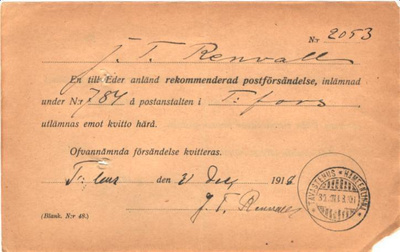 N:r 2053
J. T. Renvall
En till Eder anländ rekommenderad postförsändelse, inlämnad
under N:r 784 å postanstalten i T:fors
utlämnas emot kvitto härå.
Ofvannämnda försändelse kvitteras.
den 31 191
J. T. Renvall
(Blank. N:r 48.)
TAVASTEHUS HÄMEENLINNA